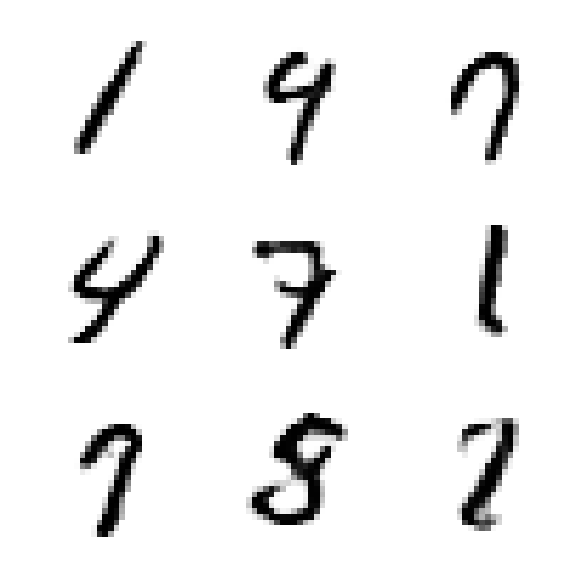 1 9 7
4 7 1
7 8 2